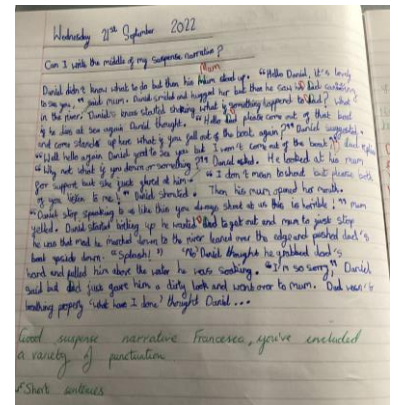 Wednesday 21st September 2022
Can I write the middle of my suspense narrative?
Mum
Daniel didn't know what to do but then his mum stood up. "Hello Daniel, it's lovely
to see you," said mum. Daniel smiled and hugged her but then he saw Dad sailing
in the river. Daniel's knees started shaking what if something happend to Dad? What
if he dies at sea again Daniel thought. "Hello Dad please come out of that boat
and come stand up here what if you fall out of the boat again?" Daniel suggested.
"Well hello again Daniel good to see you but I won't come out of the boat" dad replied
"Why not what if you drown or something?" Daniel asked. He looked at his mum
for support but she just glared at him. "I don't mean to shout but please both
of you listen to me!" Daniel shouted. Then his mum opened her mouth.
"Daniel stop speaking to us like this you always shout at us this is horrible!" mum
yelled. Daniel started boiling up he wanted Dad to get out and mum to just stop
he was that mad he marched down to the river leaned over the edge and pushed dad's
boat upside down. "Splash!" 'No' Daniel thought he grabbed dad's
hand and pulled him above the water he was soaking. "I'm so sorry," Daniel
said but dad just gave him a dirty look and went over to mum. Dad wasn't
breathing properly 'what have I done' thought Daniel...
Good suspense narrative Francesca, you've included
a variety of punctuation
Short sentences